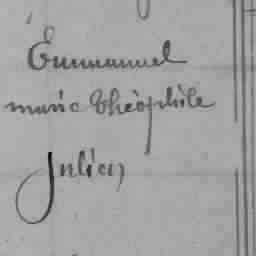 Emmanuel
marie Théophile
Julien